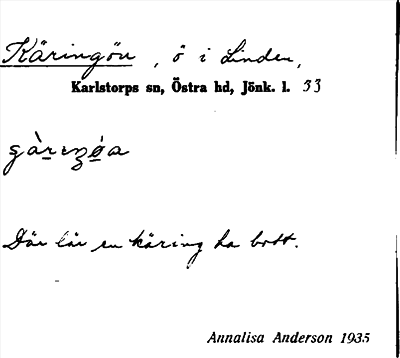 Käringön, ö i Linden,
Karlstorps sn, Östra hd, Jönk. l. 33
Där lär en käring ha bott.
Annalisa Anderson 1935